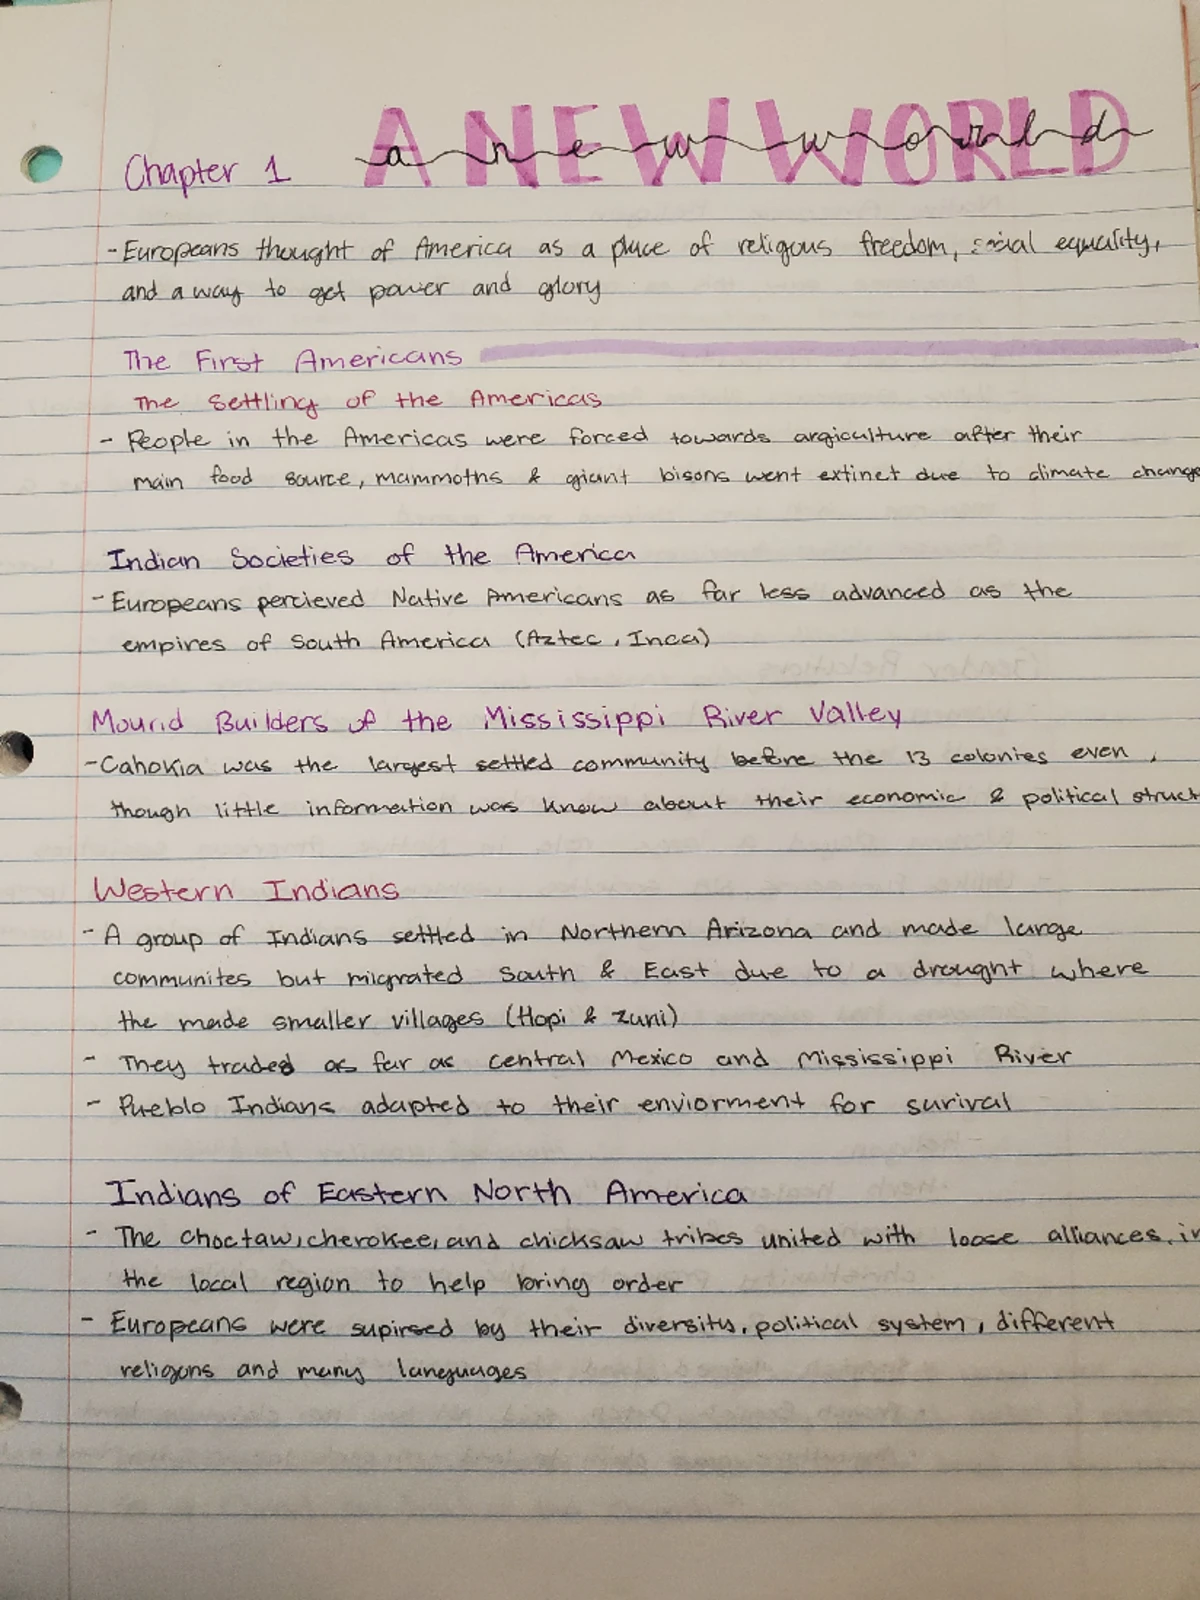 Chapter 1 A NEW WORLD
a new world
- Europeans thought of America as a place of religous freedom, social equality,
and a way to get power and glory
The First Americans
The Settling of the Americas
- People in the Americas were forced towards argiculture after their
main food source, mammoths & giant bisons went extinct due to climate change
Indian Societies of the America
- Europeans percieved Native Americans as far less advanced as the
empires of South America (Aztec, Inca)
Mound Builders of the Mississippi River Valley
- Cahokia was the largest settled community before the 13 colonies even,
though little information was know about their economic & political struct
Western Indians
- A group of Indians settled in Northern Arizona and made large
communites but migrated South & East due to a drought where
the made smaller villages (Hopi & Zuni)
- They traded as far as central Mexico and Mississippi River
- Pueblo Indians adapted to their enviorment for surival
Indians of Eastern North America
- The choctaw, cherokee, and chicksaw tribes united with loose alliances, in
the local region to help bring order
- Europeans were supirsed by their diversity, political system, different
religons and many languages